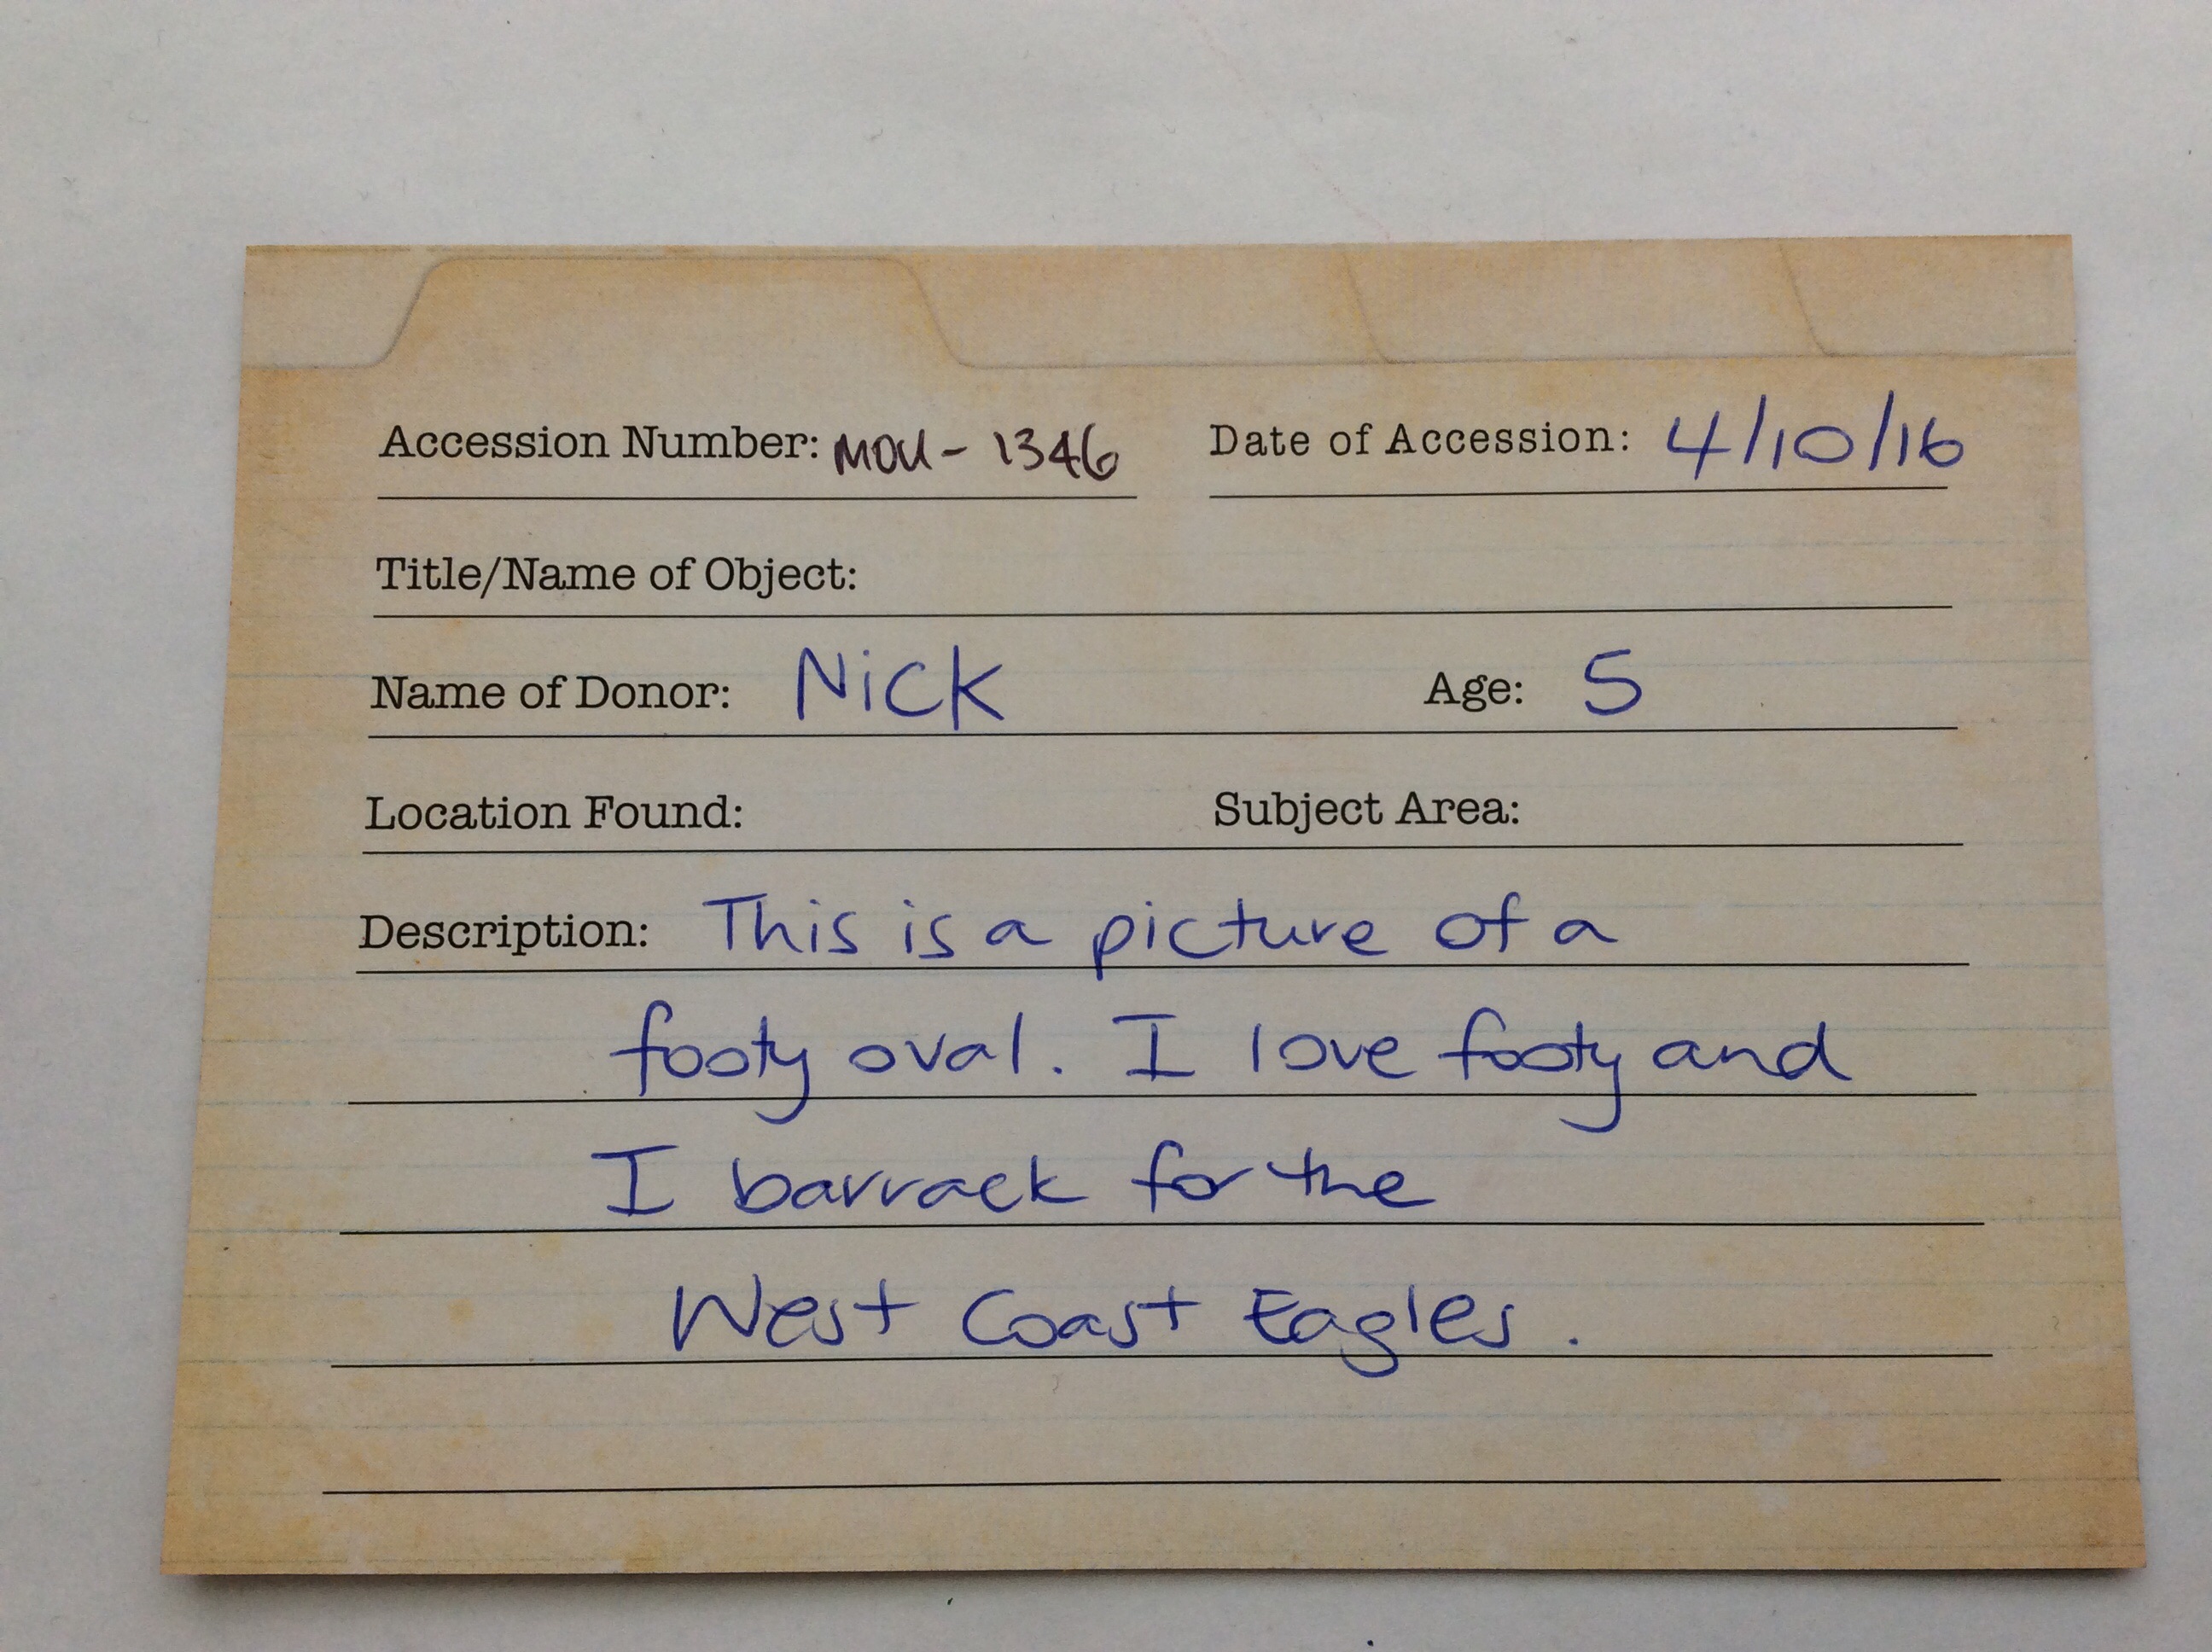 Accession Number: MOU-1346 Date of Accession: 4/10/16
Title/Name of Object:
Name of Donor: Nick Age: 5
Location Found: Subject Area:
Description: This is a picture of a
footy oval. I love footy and
I barrack for the
West Coast Eagles.